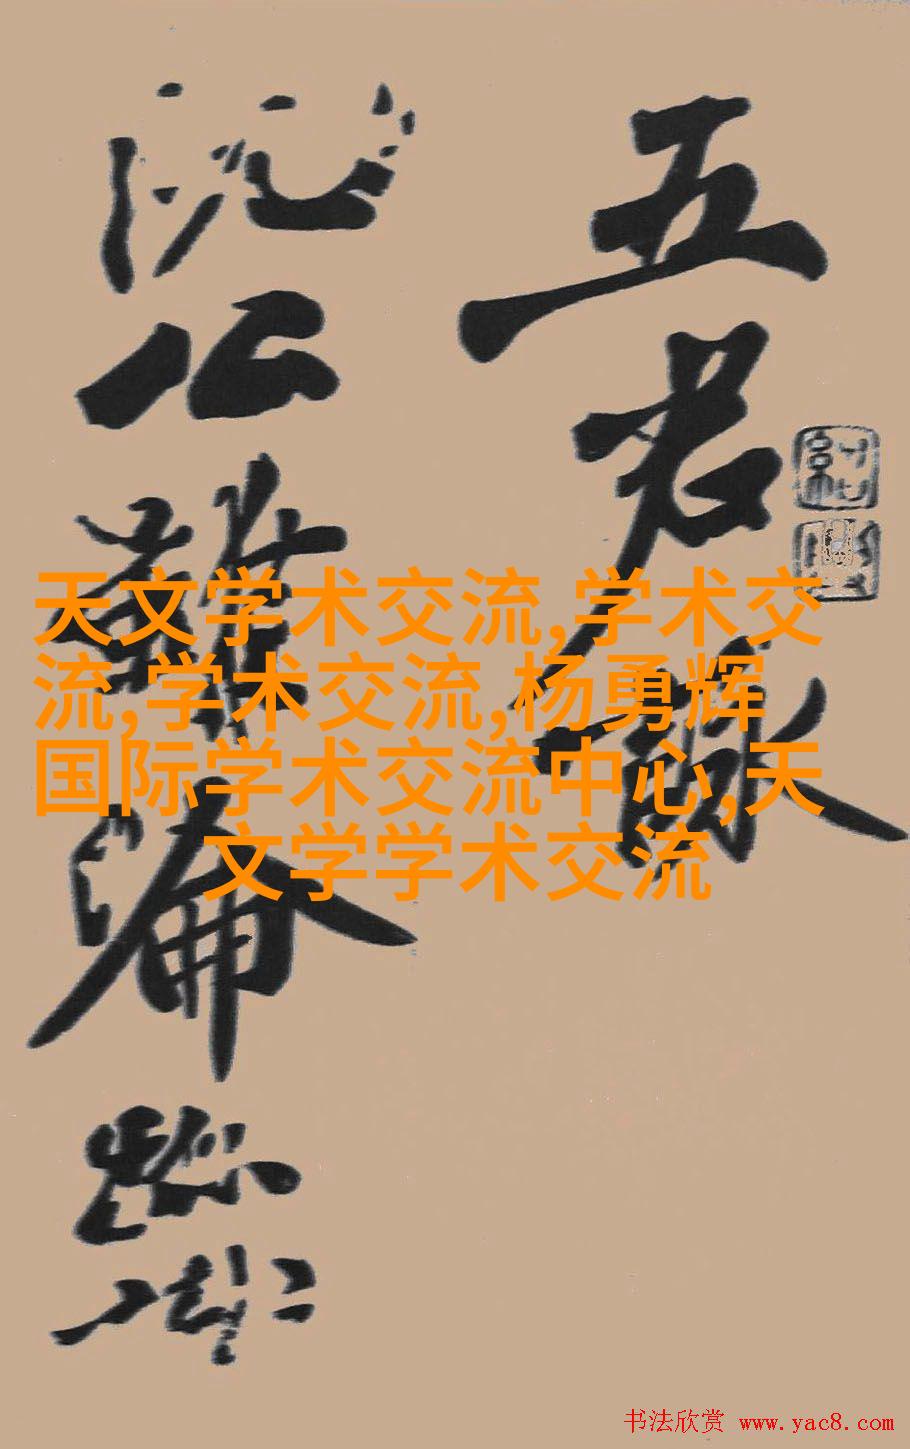 五君咏
阮公虽沦迹
天文学术交流,学术交
流,学术交流,杨勇辉
国际学术交流中心,天
文学学术交流
书法欣赏 www.yac8.com